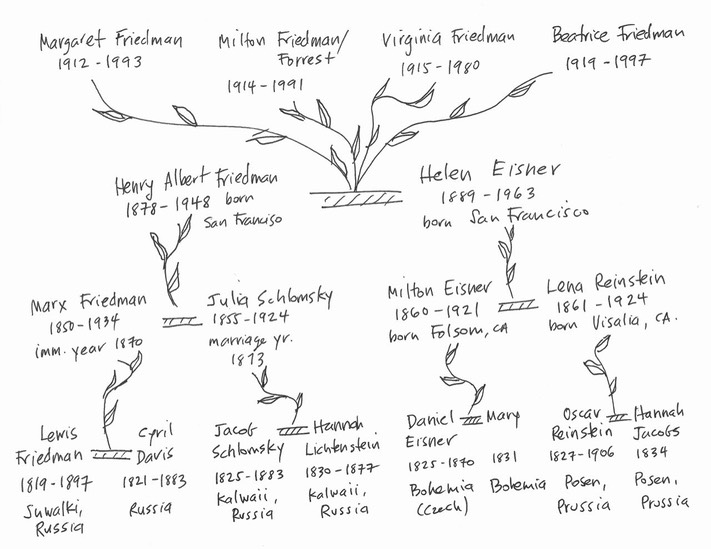 Margaret Friedman
1912 - 1993
Milton Friedman/
Forrest
1914 - 1991
Virginia Friedman
1915 - 1980
Beatrice Friedman
1919 - 1997
Henry Albert Friedman
1878 - 1948 born
San Franciso
Helen Eisner
1889 - 1963
born San Francisco
Marx Friedman
1850 - 1934
imm. year 1870
Julia Schlomsky
1855 - 1924
marriage yr.
1873
Milton Eisner
1860 - 1921
born Folsom, CA
Lena Reinstein
1861 - 1924
born Visalia, CA.
Lewis
Friedman
1819 - 1897
Suwalki,
Russia
Cyril
Davis
1821 - 1883
Russia
Jacob
Schlomsky
1825 - 1883
Kalwaii,
Russia
Hannah
Lichtenstein
1830 - 1877
Kalwaii,
Russia
Daniel
Eisner
1825 - 1870
Bohemia
(Czech)
Mary
1831
Bohemia
Oscar
Reinstein
1827 - 1906
Posen,
Prussia
Hannah
Jacobs
1834
Posen,
Prussia